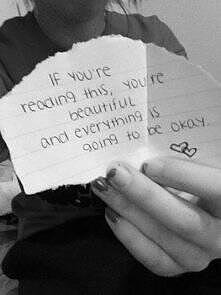 IF you're
reading this, you're
beautiful
and everything is
going to be okay.